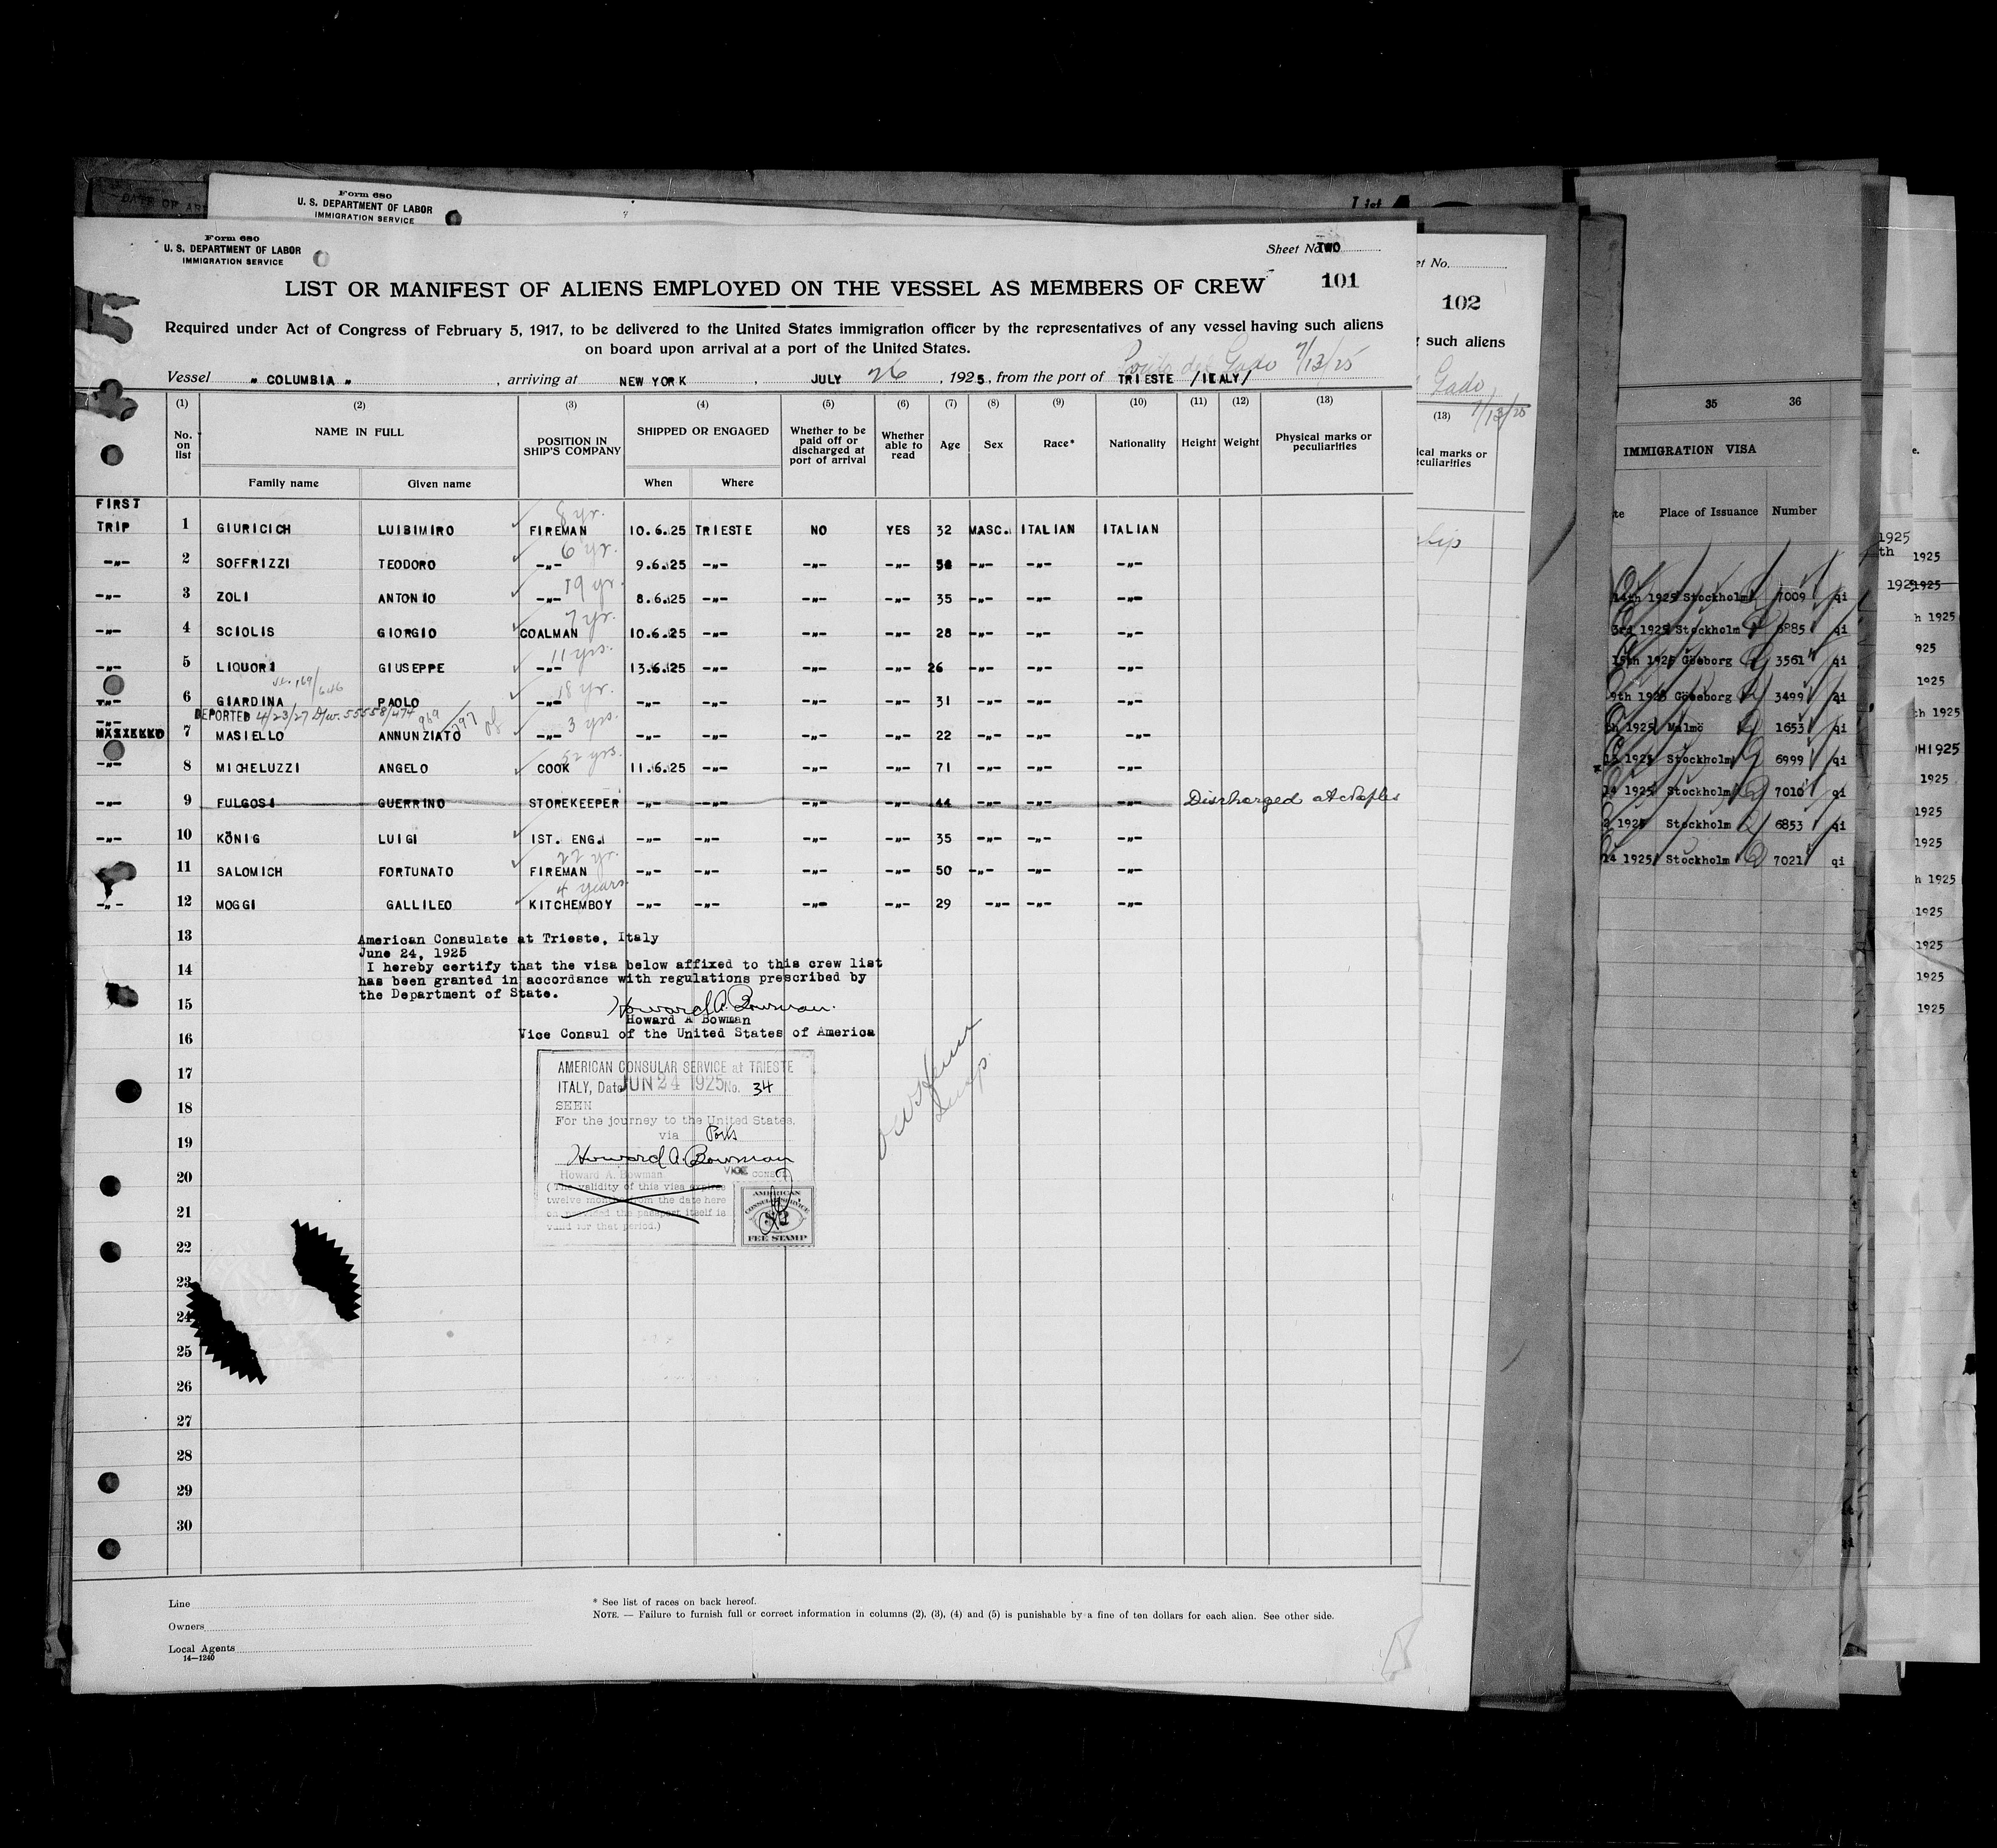 Form 680
U. S. DEPARTMENT OF LABOR
IMMIGRATION SERVICE
Form 680
U. S. DEPARTMENT OF LABOR
IMMIGRATION SERVICE
Sheet No. TWO
101
LIST OR MANIFEST OF ALIENS EMPLOYED ON THE VESSEL AS MEMBERS OF CREW
Required under Act of Congress of February 5, 1917, to be delivered to the United States immigration officer by the representatives of any vessel having such aliens
on board upon arrival at a port of the United States.
Vessel " COLUMBIA " , arriving at NEW YORK , JULY 26 , 1925, from the port of TRIESTE /ITALY/ 7/13/25
(1) (2) (3) (4) (5) (6) (7) (8) (9) (10) (11) (12) (13)
No. on list NAME IN FULL POSITION IN SHIP'S COMPANY SHIPPED OR ENGAGED Whether to be paid off or discharged at port of arrival Whether able to read Age Sex Race* Nationality Height Weight Physical marks or peculiarities
Family name Given name When Where
FIRST
8 yr.
TRIP 1 GIURICICH LUIBIMIRO FIREMAN 10.6.25 TRIESTE NO YES 32 MASC. ITALIAN ITALIAN
6 yr.
-"- 2 SOFFRIZZI TEODORO -"- 9.6.25 -"- -"- -"- -"- -"- -"-
19 yr.
-"- 3 ZOLI ANTONIO -"- 8.6.25 -"- -"- -"- 35 -"- -"- -"-
7 yr.
-"- 4 SCIOLIS GIORGIO COALMAN 10.6.25 -"- -"- -"- 28 -"- -"- -"-
11 yrs.
-"- 5 LIQUORI GIUSEPPE -"- 13.6.25 -"- -"- -"- 26 -"- -"- -"-
18 yr.
-"- 6 GIARDINA PAOLO -"- -"- -"- -"- -"- 31 -"- -"- -"-
DEPORTED 4/23/27 55558/474
3 yrs.
-"- 7 MASIELLO ANNUNZIATO -"- -"- -"- -"- -"- 22 -"- -"- -"-
52 yrs.
-"- 8 MICHELUZZI ANGELO COOK 11.6.25 -"- -"- -"- 71 -"- -"- -"-
-"- 9 FULGOSI GUERRINO STOREKEEPER -"- -"- -"- -"- 44 -"- -"- -"- Discharged at Naples
-"- 10 KÖNIG LUIGI IST. ENG. -"- -"- -"- -"- 35 -"- -"- -"-
22 yr.
11 SALOMICH FORTUNATO FIREMAN -"- -"- -"- -"- 50 -"- -"- -"-
4 years
-"- 12 MOGGI GALLILEO KITCHEMBOY -"- -"- -"- -"- 29 -"- -"- -"-
13
American Consulate at Trieste, Italy
June 24, 1925
14
I hereby certify that the visa below affixed to this crew list
has been granted in accordance with regulations prescribed by
the Department of State.
15
Howard A. Bowman
Howard A Bowman
16
Vice Consul of the United States of America
17
AMERICAN CONSULAR SERVICE at TRIESTE
ITALY, Date JUN 24 1925 No. 34
18
SEEN
For the journey to the United States.
19
via Ports
Howard A. Bowman
20
Howard A. Bowman VICE CONSUL
(The validity of this visa expires
twelve months from the date here
21
on provided the passport itself is
valid for that period.)
AMERICAN
CONSULAR SERVICE
$2
FEE STAMP
22
23
24
25
26
27
28
29
30
Line
Owners
Local Agents
14—1240
* See list of races on back hereof.
NOTE. — Failure to furnish full or correct information in columns (2), (3), (4) and (5) is punishable by a fine of ten dollars for each alien. See other side.
et No.
102
such aliens
Gado
7/13/25
(13)
ical marks or
eculiarities
35 36
IMMIGRATION VISA
te Place of Issuance Number
14th 1925 Stockholm 7009 qi
3rd 1925 Stockholm 6885 qi
15th 1925 Göteborg 3561 qi
9th 1925 Göteborg 3499 qi
th 1925 Malmö 1653 qi
15 1925 Stockholm 6999 qi
14 1925 Stockholm 7010 qi
2 1925 Stockholm 6853 qi
14 1925 Stockholm 7021 qi
1925
th 1925
1925
h 1925
925
1925
ch 1925
H1925
1925
1925
1925
h 1925
1925
1925
1925
1925